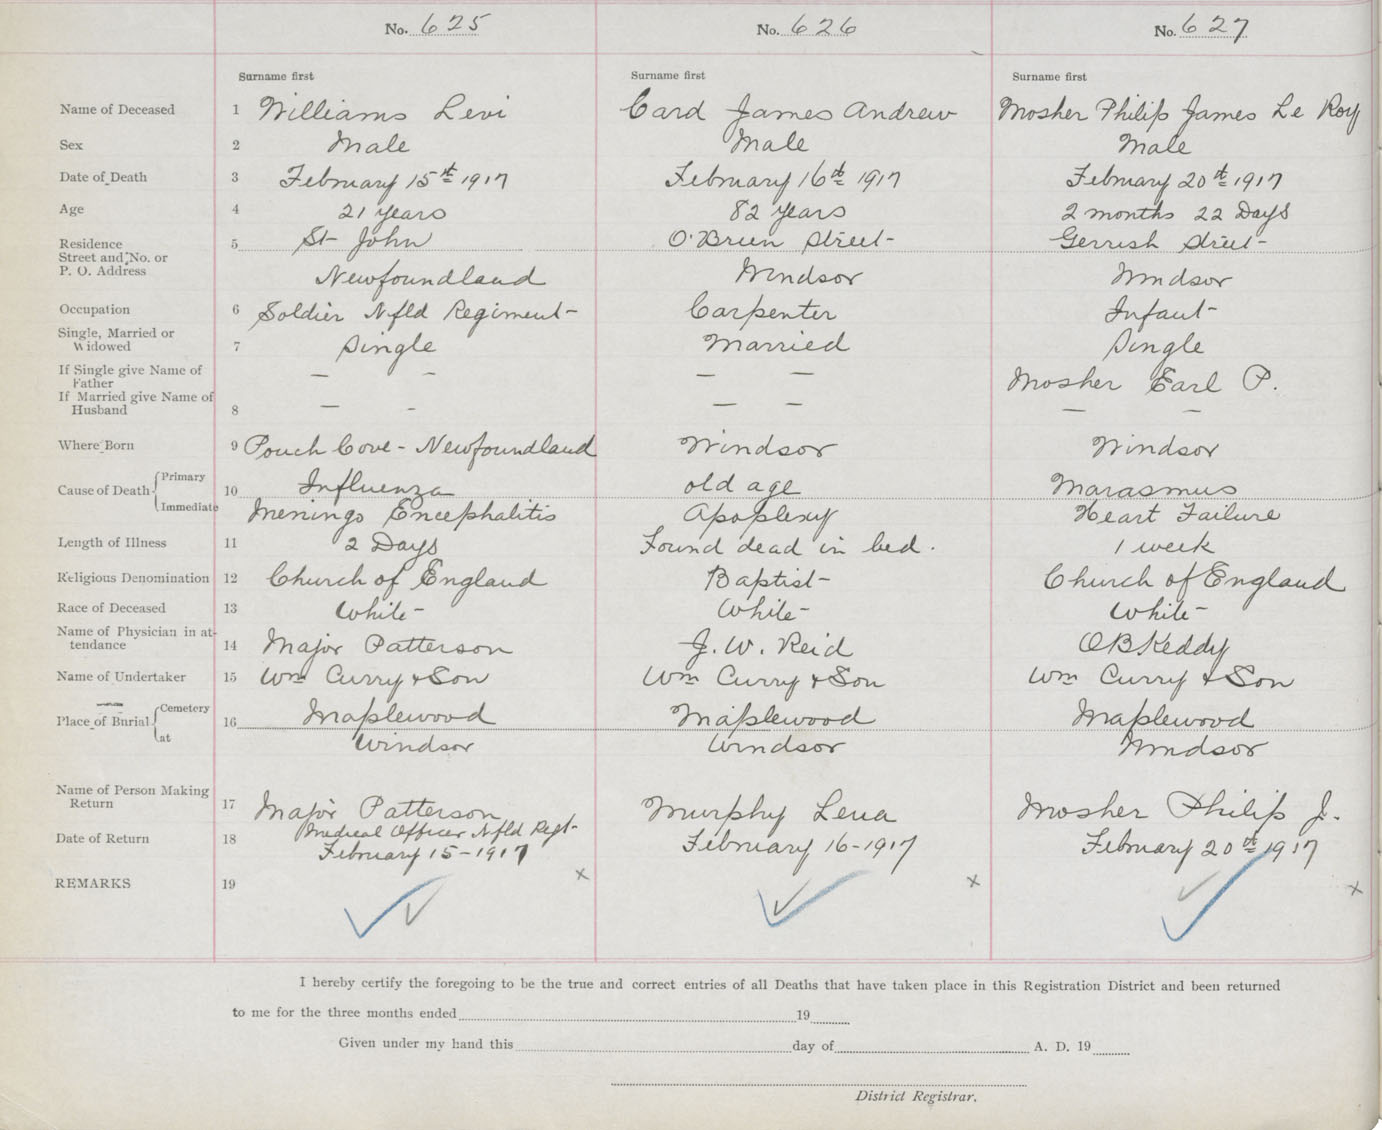 No. 625 No. 626 No. 627
Surname first Surname first Surname first
Name of Deceased 1 Williams Levi Card James Andrew Mosher Philip James Le Roy
Sex 2 Male Male Male
Date of Death 3 February 15th 1917 February 16th 1917 February 20th 1917
Age 4 21 years 82 years 2 months 22 Days
Residence 5 St John O'Brien Street Gerrish Street
Street and No. or
P. O. Address Newfoundland Windsor Windsor
Occupation 6 Soldier Nfld Regiment Carpenter Infant
Single, Married or
Widowed 7 Single Married Single
If Single give Name of
Father — - — — Mosher Earl P.
If Married give Name of
Husband 8 — - — — — —
Where Born 9 Pouch Cove - Newfoundland Windsor Windsor
Cause of Death { Primary 10 Influenza old age Marasmus
Immediate Meningo Encephalitis Apoplexy Heart Failure
Length of Illness 11 2 Days Found dead in bed. 1 week
Religious Denomination 12 Church of England Baptist Church of England
Race of Deceased 13 White White White
Name of Physician in at-
tendance 14 Major Patterson J. W. Reid O B Keddy
Name of Undertaker 15 Wm Curry & Son Wm Curry & Son Wm Curry & Son
Place of Burial { Cemetery 16 Maplewood Maplewood Maplewood
at Windsor Windsor Windsor
Name of Person Making
Return 17 Major Patterson Murphy Lena Mosher Philip J.
Medical Officer Nfld Regt-
Date of Return 18 February 15-1917 February 16-1917 February 20th 1917
REMARKS 19 x x x
I hereby certify the foregoing to be the true and correct entries of all Deaths that have taken place in this Registration District and been returned
to me for the three months ended 19
Given under my hand this day of A. D. 19
District Registrar.